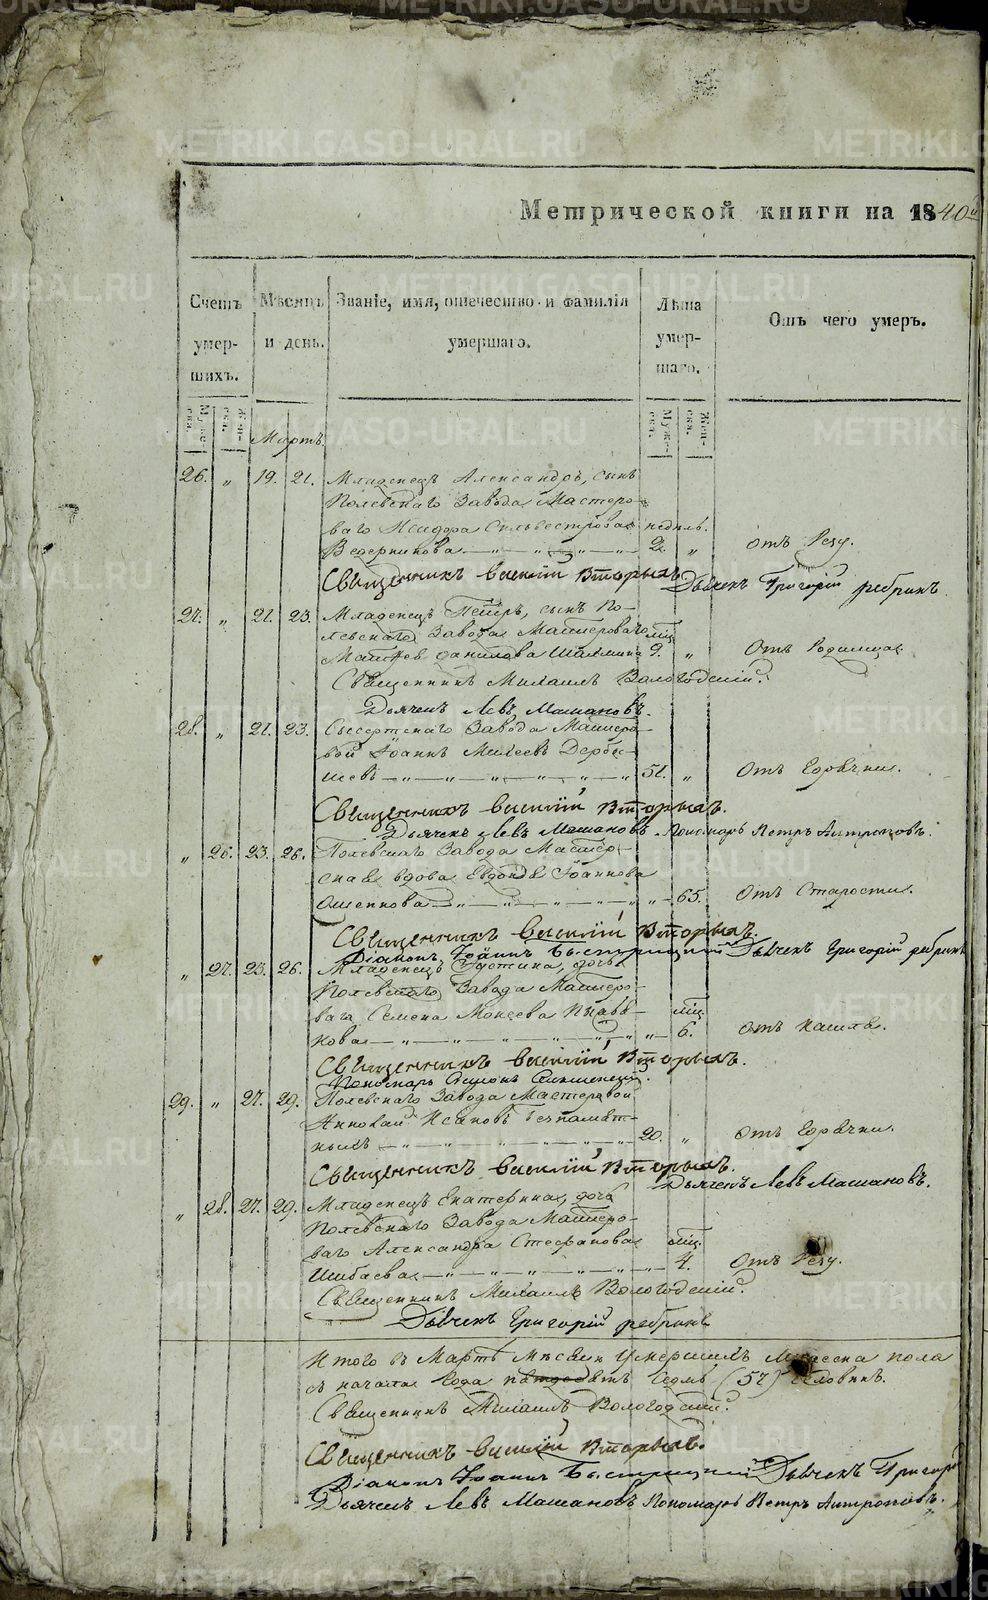 METRIKI.GASO-URAL.RU
Метрической книги на 1840й
Счетъ умер- шихъ.
Мѣсяцъ и день.
Званіе, имя, отечество и фамилія умершаго.
Лѣта умер- шаго.
Отъ чего умеръ.
Мартъ.
26. „ 19. 21. Младенецъ Александръ, сынъ
Полевскаго Завода Мастеро-
ваго Исидора Сильвестрова недѣль.
Ведерникова 2. „ отъ Резу.
Священникъ Василій Вторыхъ Дьячекъ Григорій
27. „ 21. 23. Младенецъ Петръ, сынъ По-
левскаго Завода Мастероваго мѣц.
Матвѣя Данилова Шаламина 9. „ Отъ Родимца.
Священникъ Михаилъ Вологодскій.
Дьячекъ Левъ Машановъ.
28. „ 21. 23. Сысертскаго Завода Мастеро-
вой Іоаннъ Михеевъ Дербе-
шевъ 51. „ Отъ Горячки.
Священникъ Василій Вторыхъ.
Дьячекъ Левъ Машановъ Пономарь Петръ Антроповъ.
„ 26. 23. 26. Полевскаго Завода Мастер-
ская вдова Евдокія Іоаннова
„ 65. Отъ Старости.
Священникъ Василій Вторыхъ.
Діаконъ Іоаннъ Быстрицкій Дьячекъ Григорій
„ 27. 23. 26. Младенецъ Іустина, дочь
Полевскаго Завода Мастеро-
ваго Семена Моисеева мѣц.
нова „ 6. отъ Кашля.
Священникъ Василій Вторыхъ.
Пономарь
29. „ 27. 29. Полевскаго Завода Мастеровой
Николай Исаковъ Безпамят-
ныхъ 20. „ отъ Горячки.
Священникъ Василій Вторыхъ.
Дьячекъ Левъ Машановъ.
„ 28. 27. 29. Младенецъ Екатерина, дочь
Полевскаго Завода Мастеро-
ваго Александра Стефанова мѣц.
Шибаева „ 4. Отъ Резу.
Священникъ Михаилъ Вологодскій.
Дьячекъ Григорій
Итого въ Мартѣ Мѣсяцѣ Умершихъ Мужеска пола
съ начала Года пятдесятъ Седмь (57) человѣкъ.
Священникъ Михаилъ Вологодскій.
Священникъ Василій Вторыхъ.
Діаконъ Іоаннъ Быстрицкій Дьячекъ Григорій
Дьячекъ Левъ Машановъ Пономарь Петръ Антроповъ.